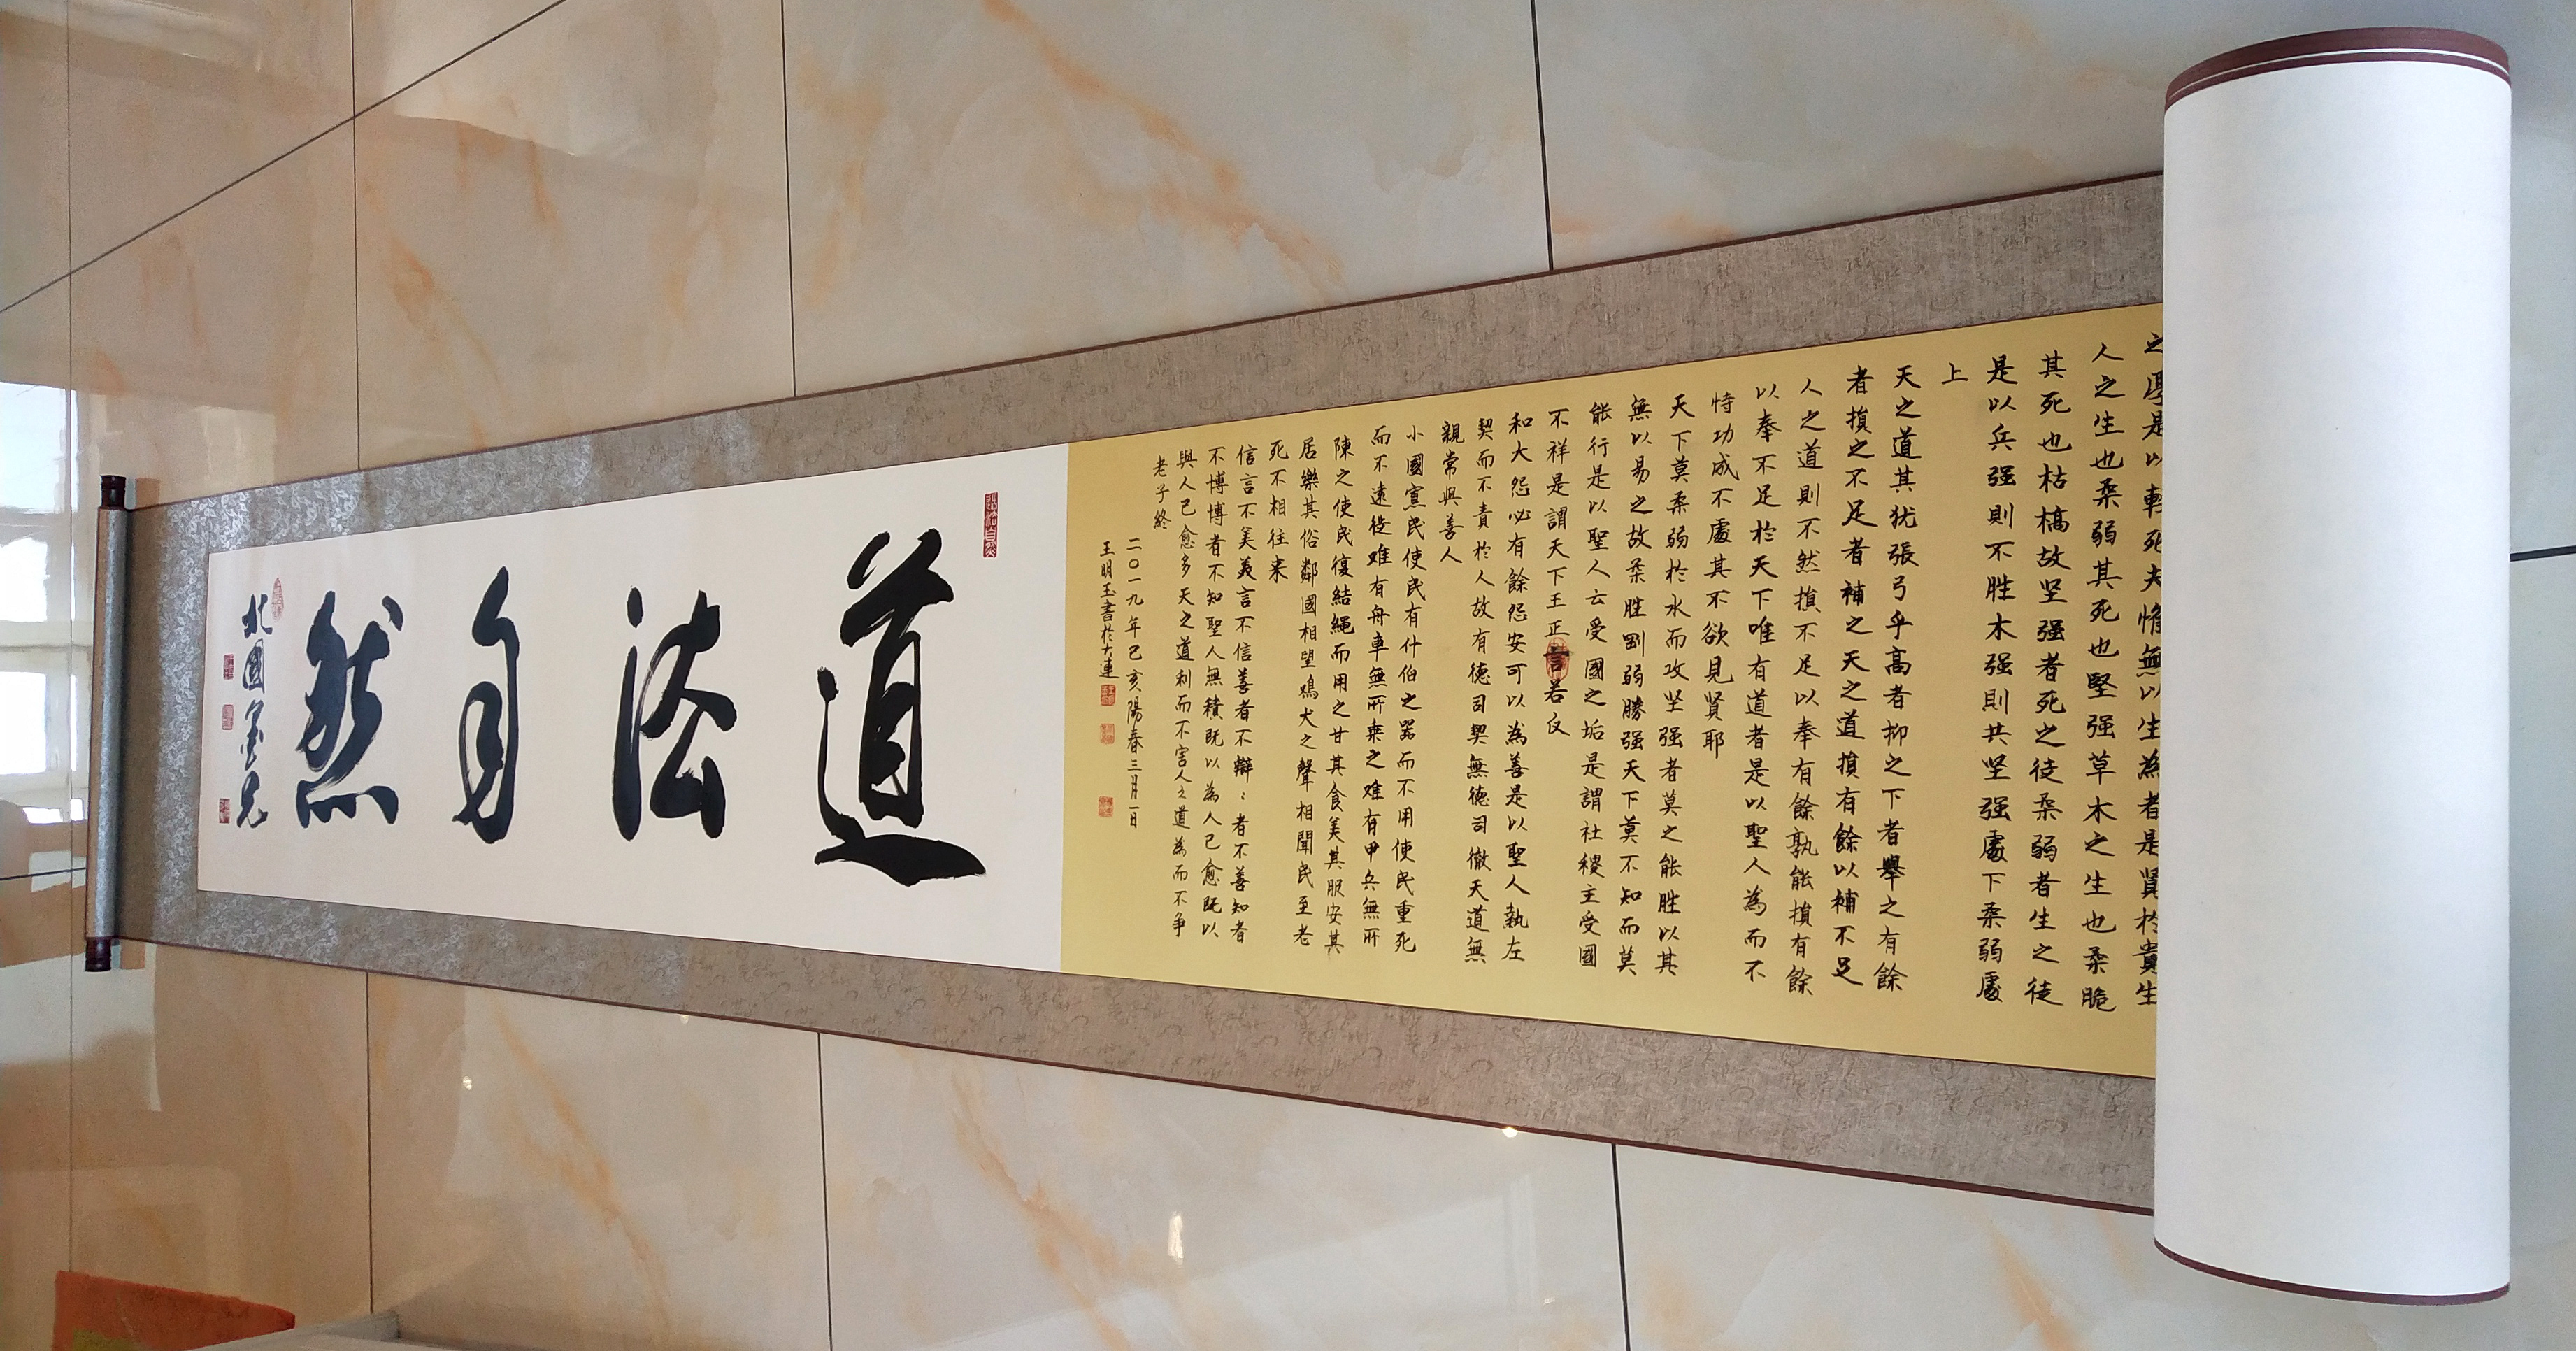 之厚是以輕死夫惟無以生為者是賢於貴生
人之生也柔弱其死也堅强草木之生也柔脆
其死也枯槁故坚强者死之徒柔弱者生之徒
是以兵强則不胜木强則共坚强處下柔弱處
上
天之道其犹張弓乎高者抑之下者舉之有餘
者損之不足者補之天之道損有餘以補不足
人之道則不然損不足以奉有餘孰能損有餘
以奉不足於天下唯有道者是以聖人為而不
恃功成不處其不欲見賢耶
天下莫柔弱於水而攻坚强者莫之能胜以其
無以易之故柔胜剛弱勝强天下莫不知而莫
能行是以聖人云受國之垢是謂社稷主受國
不祥是謂天下王正言若反
和大怨必有餘怨安可以為善是以聖人執左
契而不責於人故有德司契無德司徹天道無
親常與善人
小國寡民使民有什伯之器而不用使民重死
而不遠徙雖有舟車無所乘之雖有甲兵無所
陳之使民復結繩而用之甘其食美其服安其
居樂其俗鄰國相望鷄犬之聲相聞民至老
死不相往来
信言不美美言不信善者不辯〻者不善知者
不博博者不知聖人無積既以為人己愈既以
與人己愈多天之道利而不害人之道為而不争
老子終
二〇一九年己亥陽春三月一日
王明玉書於大連
道法自然
北國墨兄